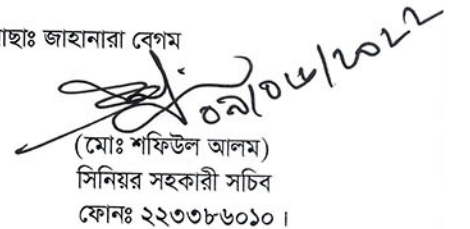 মোছাঃ জাহানারা বেগম
০৯/০৮/২০২২
(মোঃ শফিউল আলম)
সিনিয়র সহকারী সচিব
ফোনঃ ২২৩৩৮৬০১০।